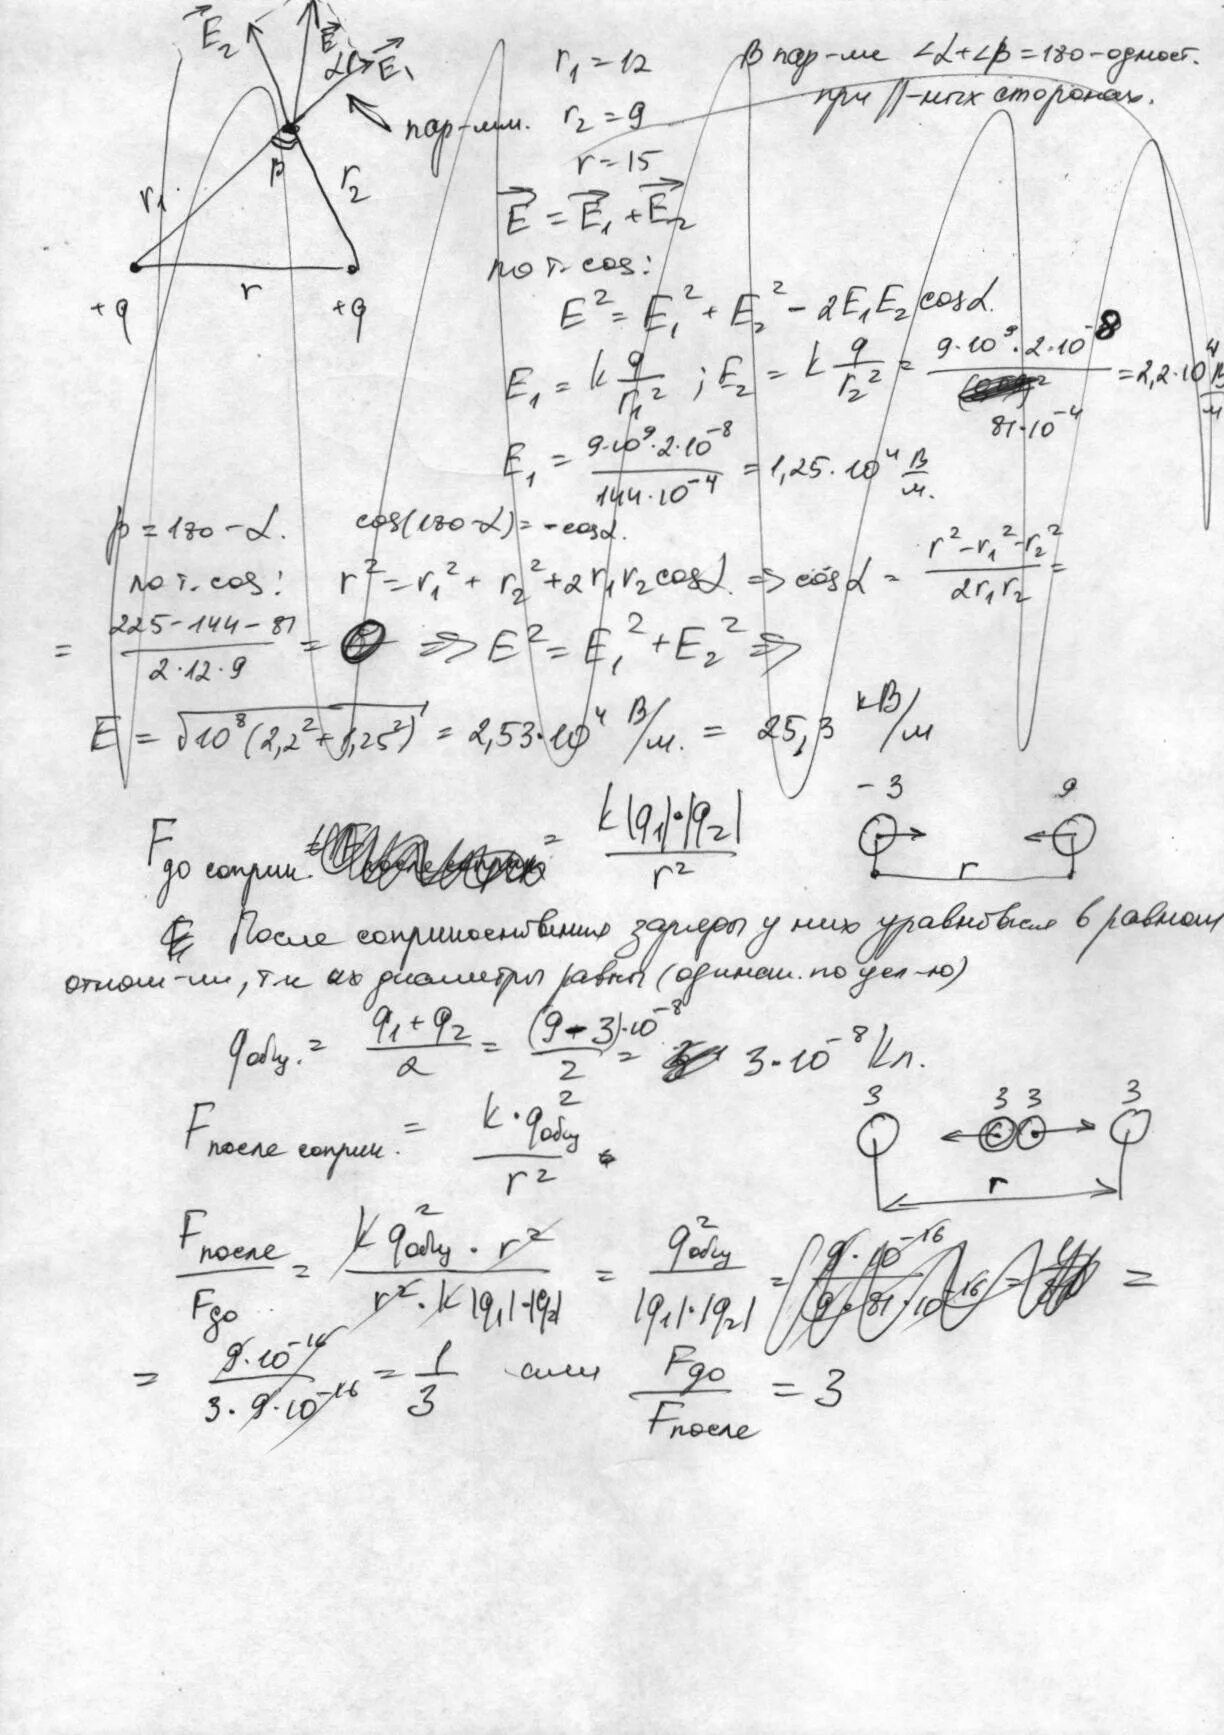 E₂ E E₁
α
r₁ = 12
В пар-ме ∠α+∠β = 180 - одност.
при ||-ных сторонах.
пар-мм.
r₂ = 9
β
r = 15
r₁ r₂
E = E₁ + E₂
r
+q +q
по т. cos:
E² = E₁² + E₂² - 2E₁E₂ cosα.
E₁ = k q/r₁² ; E₂ = k q/r₂² = 9·10⁹·2·10⁻⁸/81·10⁻⁴ = 2,2·10⁴ В/м
E₁ = 9·10⁹·2·10⁻⁸/144·10⁻⁴ = 1,25·10⁴ В/м.
β = 180 - α. cos(180-α) = -cosα.
по т. cos: r² = r₁² + r₂² + 2r₁r₂ cosα. => cosα = r² - r₁² - r₂²/2r₁r₂ =
= 225 - 144 - 81/2·12·9 = 0 => E² = E₁² + E₂² =>
E = √10⁸(2,2² + 1,25²) = 2,53·10⁴ В/м. = 25,3 кВ/м
-3 9
F до соприк. = k|q₁|·|q₂|/r²
r
После соприкосновения заряды у них уравновесься в равном
отнош-ии, т.к их диаметры равны (одинак. по усл-ю)
qобщ. = q₁ + q₂/2 = (9 - 3)·10⁻⁸/2 = 3·10⁻⁸ Кл.
3 3 3 3
F после соприк. = k·qобщ²/r².
r
Fпосле/Fдо = k qобщ²·r²/r²·k|q₁|·|q₂| = qобщ²/|q₁|·|q₂| = =
= 9·10⁻¹⁶/3·9·10⁻¹⁶ = 1/3 или Fдо/Fпосле = 3